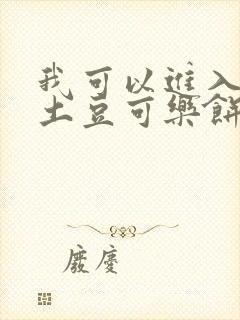 我可以進入
土豆可樂餅
廢慶